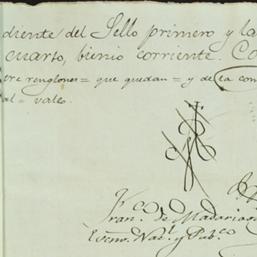 diente del Sello primero y la
cuarto, bienio corriente. Co
tre renglones = que quedan = y de la con
al = vale.
Fran.co de Madariag
Escno. Nac.l y Pub.co